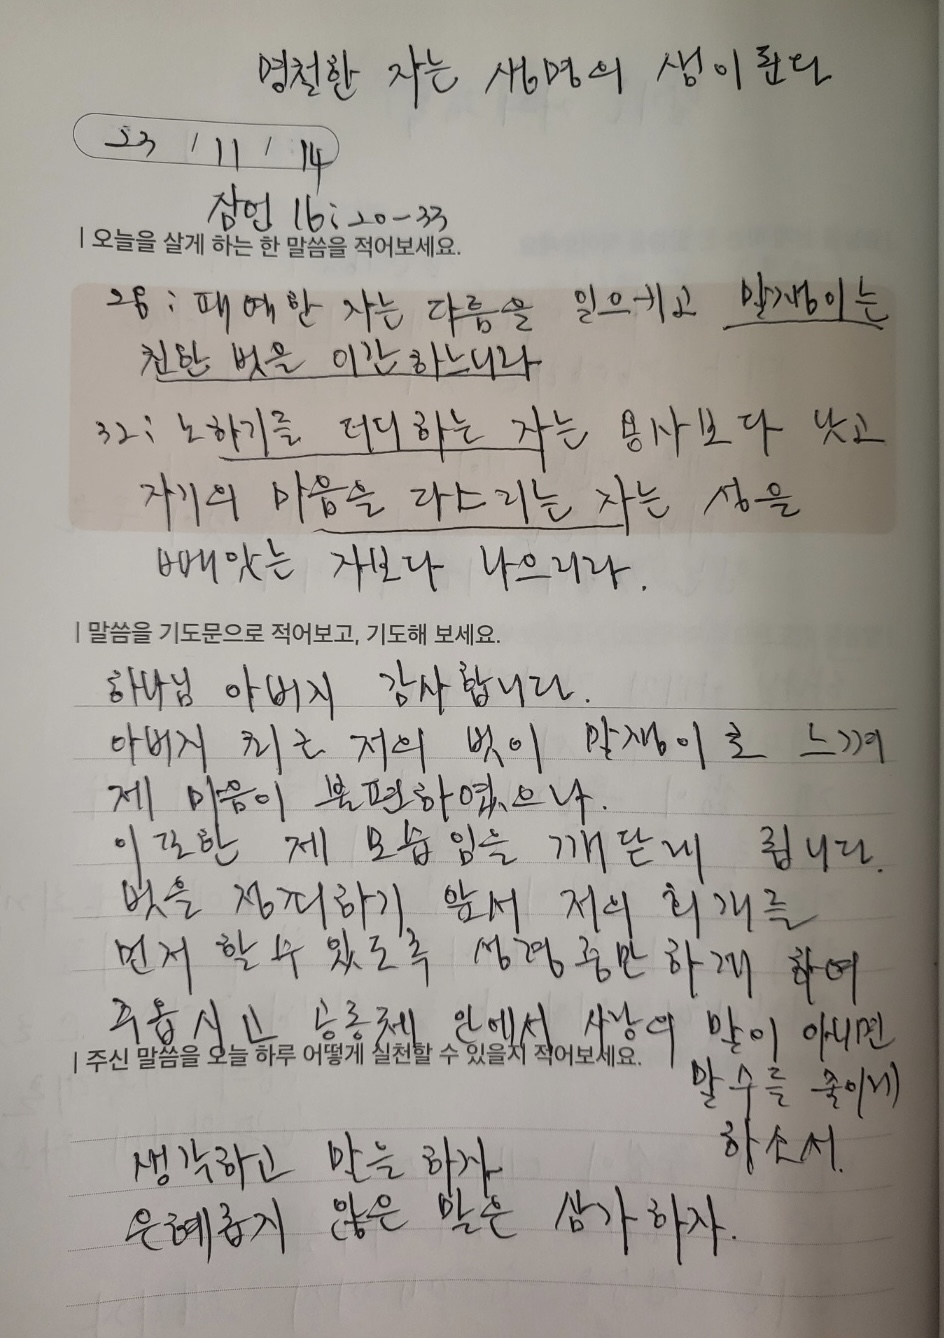 명철한 자는 생명의 샘이 된다
23 / 11 / 14
잠언 16:20-33
| 오늘을 살게 하는 한 말씀을 적어보세요.
28: 패역한 자는 다툼을 일으키고 말쟁이는
친한 벗을 이간하느니라
32: 노하기를 더디하는 자는 용사보다 낫고
자기의 마음을 다스리는 자는 성을
빼앗는 자보다 나으리라.
| 말씀을 기도문으로 적어보고, 기도해 보세요.
하나님 아버지 감사합니다.
아버지 저의 벗이 말쟁이로 느껴
제 마음이 불편하였으나.
이 또한 제 모습임을 깨닫게 됩니다.
벗을 정죄하기 앞서 저의 회개를
먼저 할 수 있도록 성령충만하게 하여
주옵시고 공동체 안에서 사랑의 말이 아니면
말 수를 줄이게
하소서.
| 주신 말씀을 오늘 하루 어떻게 실천할 수 있을지 적어보세요.
생각하고 말을 하자
은혜롭지 않은 말은 삼가하자.